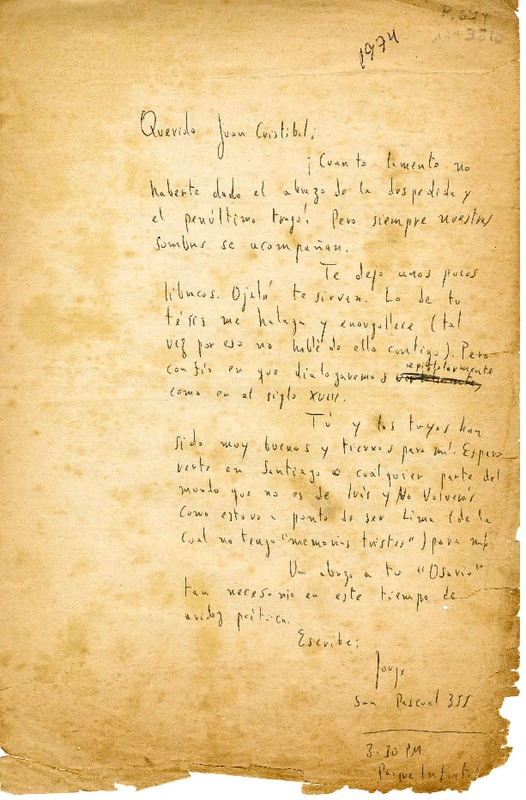 1974
Querido Juan Cristóbal:
¡Cuanto lamento no
haberte dado el abrazo de la despedida y
el penúltimo trago! Pero siempre nuestras
sombras se acompañan.
Te dejo unos pocos
librucos. Ojalá te sirvan. Lo de tu
tésis me halaga y enorgullece (tal
vez por eso no hablé de ello contigo). Pero
confío en que dialogaremos epistolarmente
como en el siglo XVIII.
Tú y los tuyos han
sido muy buenos y tiernos para mí. Espero
verte en Santiago o cualquier parte del
mundo que no es de Irás y No Volverás
como estuvo a punto de ser Lima (de la
cual no tengo "memorias tristes") para mí.
Un abrazo a tu "Osario"
tan necesario en este tiempo de
aridez poética.
Escribe:
Jorge
San Pascual 355
3.30 PM
Parque